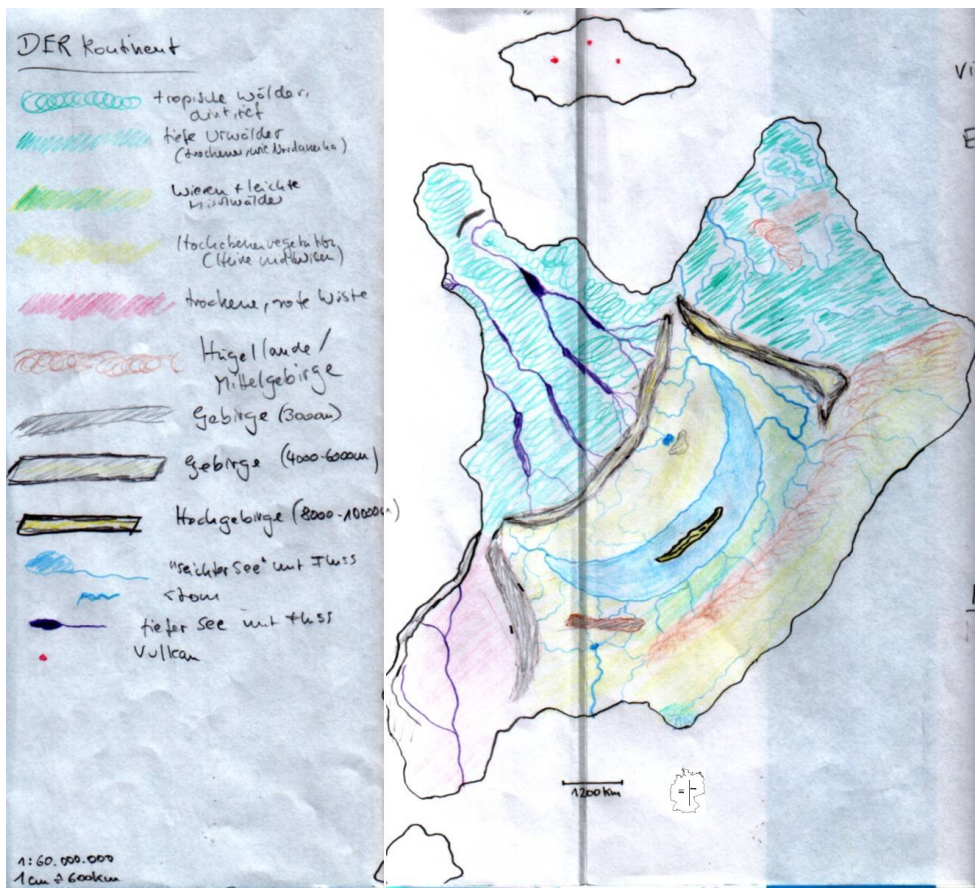 DER Kontinent
tropische Wälder,
tiefe Urwälder
(trockener, wie Nordamerika)
Wiesen + leichte
Mischwälder
Hochebenenvegetation
(Steine und Wiesen)
trockene, rote Wüste
Hügellande /
Mittelgebirge
Gebirge (3000m)
Gebirge (4000-6000m)
Hochgebirge (8000-10000m)
"seichter See" mit Fluss
Strom
tiefer See mit Fluss
Vulkan
1:60.000.000
1cm ≙ 600km
1200km